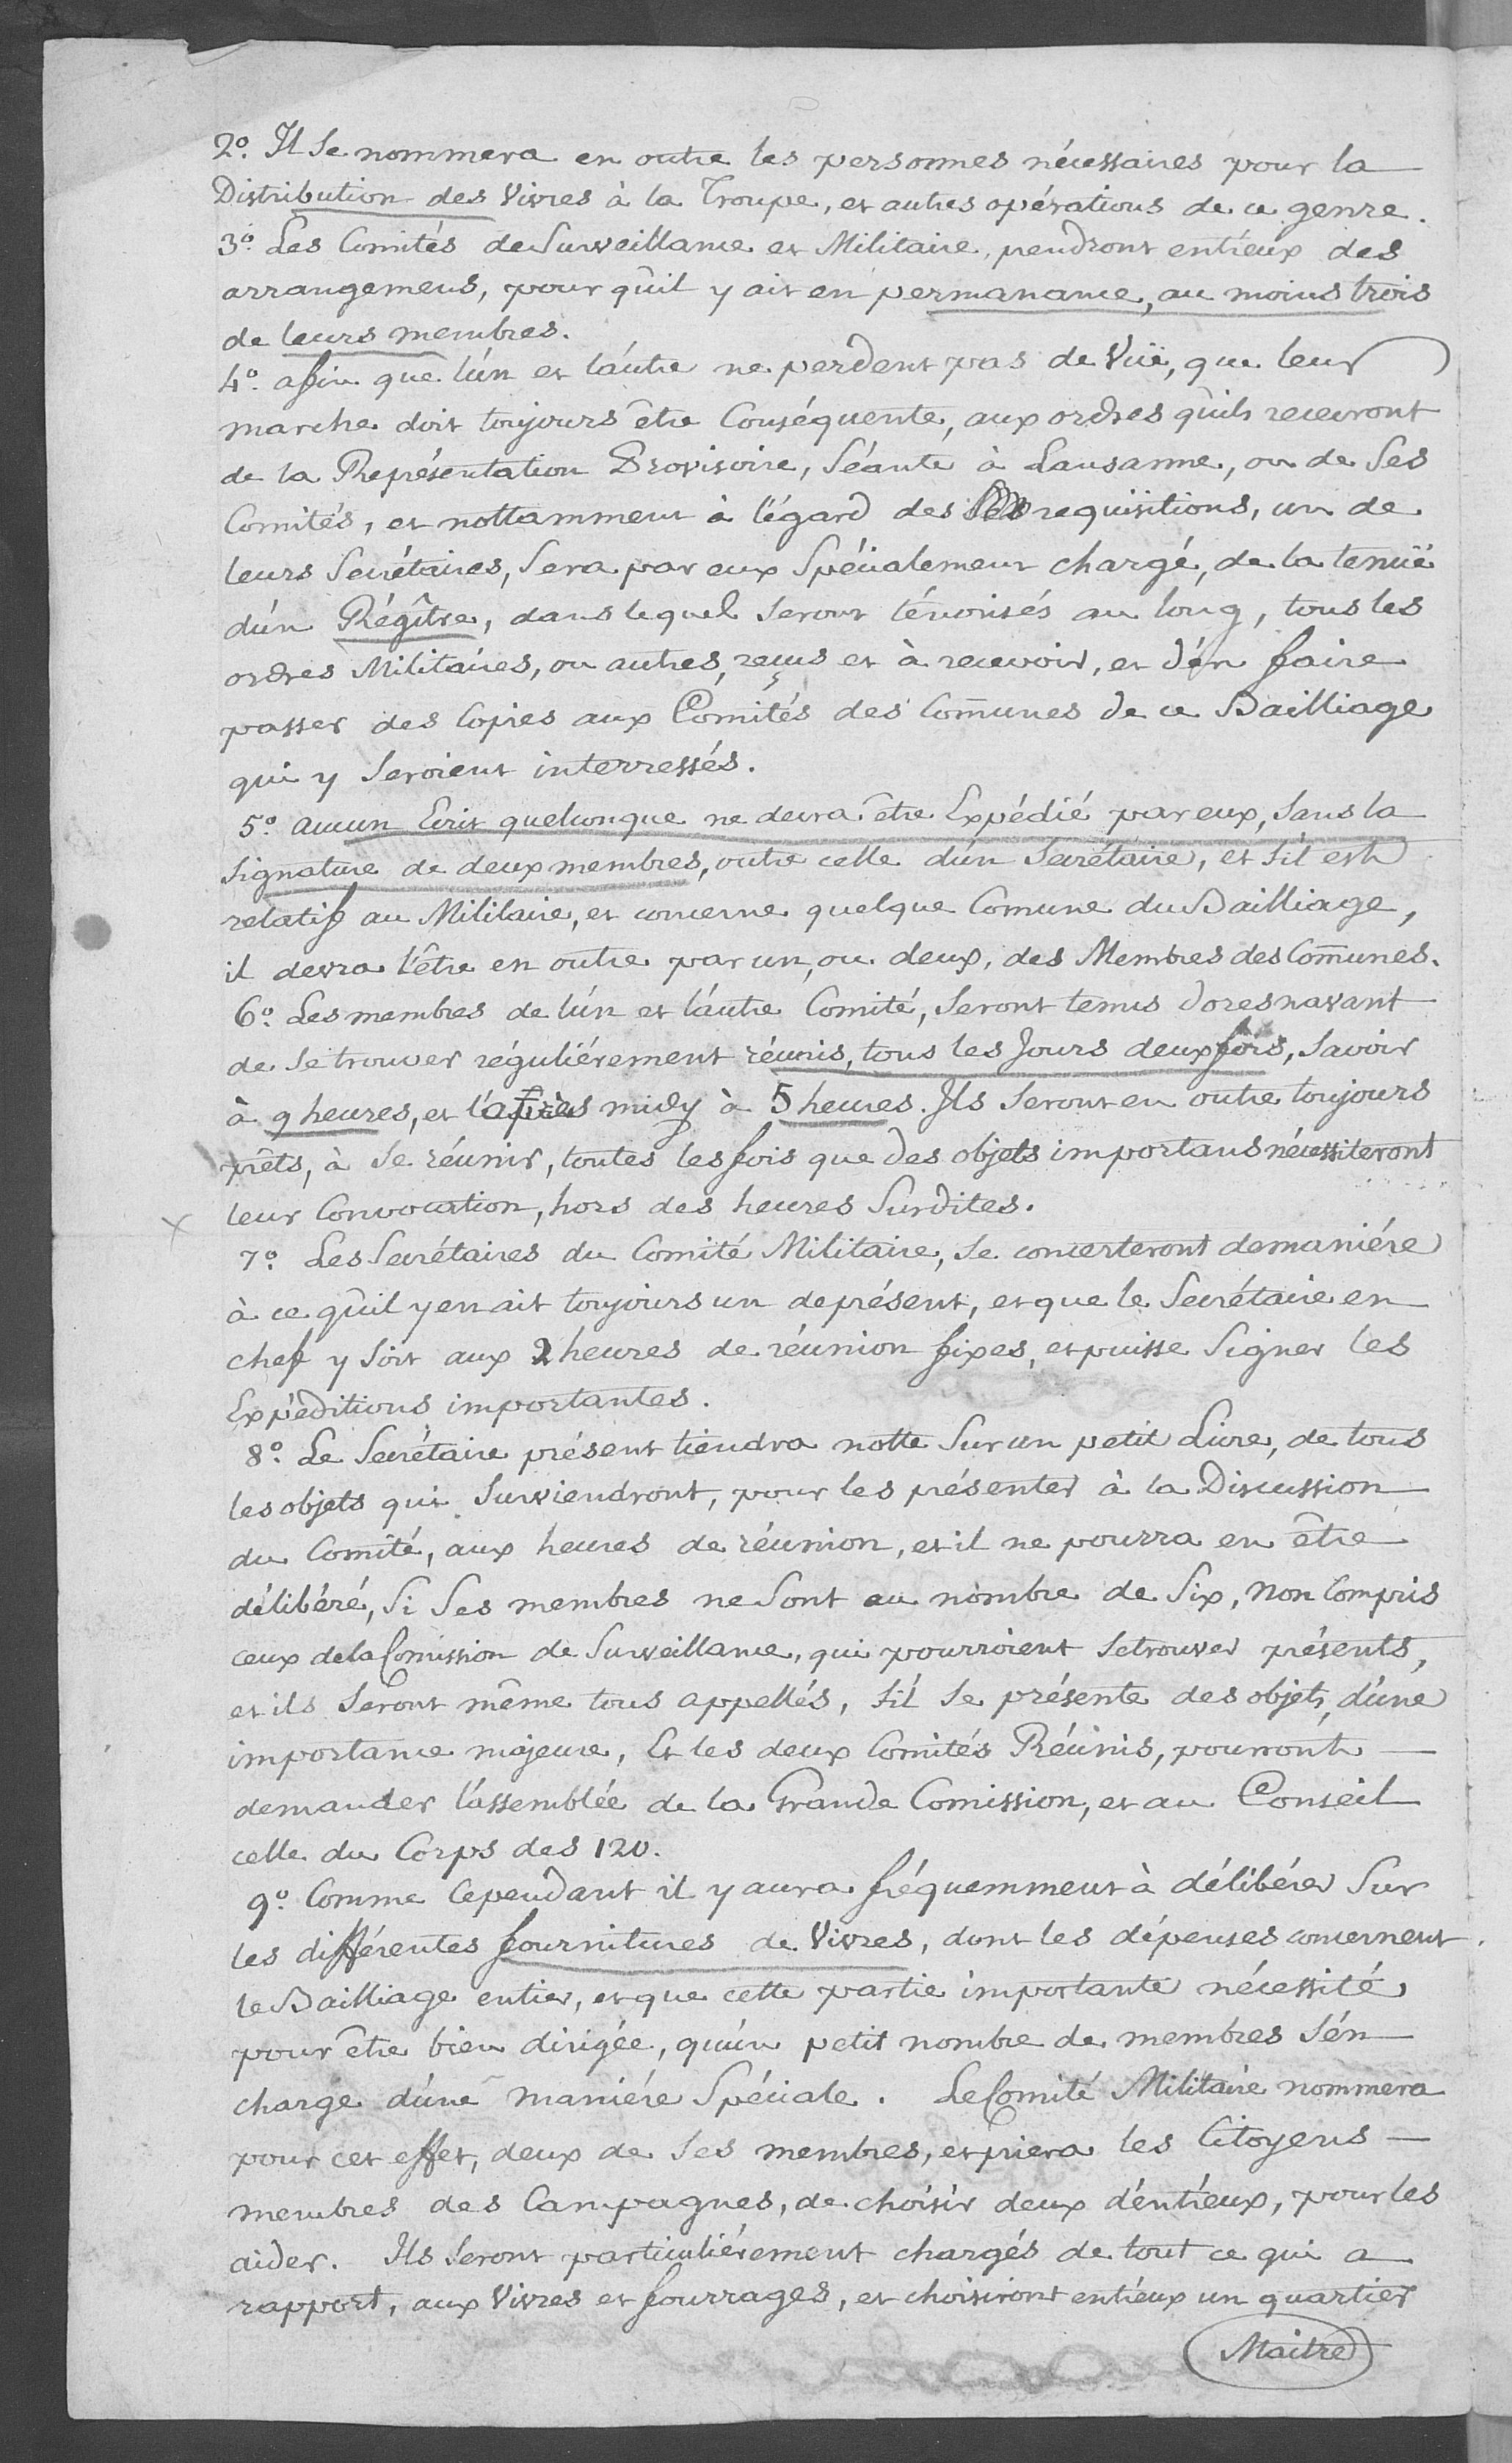 2.° Il se nommera en outre les personnes nécessaires pour la
Distribution des Vivres à la Troupe, et autres opérations de ce genre.
3.° Les Comités de Surveillance et Militaire, prendront entr'eux des
arrangemens, pour qu'il y ait en permanance, au moins trois
de leurs membres.
4.° afin que l'un et l'autre ne perdent pas de Vüe, que leur
marche doit toujours être Conséquente, aux ordres qu'ils recevront
de la Représentation Provisoire, Séante à Lausanne, ou de Ses
Comités, et nottamment à l'égard des requisitions, un de
leurs Secrétaires, Sera par eux Spécialement chargé, de la tenüe
d'un Régître, dans lequel Seront ténorisés au long, tous les
ordres Militaires, ou autres, reçus et à recevoir, et d'en faire
passer des Copies aux Comités des Com̄unes de ce Bailliage
qui y Seroient interressés.
5.° aucun Ecrit quelconque ne devra être Expédié par eux, Sans la
Signature de deux membres, outre celle d'un Secrétaire, et s'il est
relatif au Militaire, et concerne quelque Comune du Bailliage,
il devra l'être en outre par un, ou deux, des Membres des Com̄unes.
6.° Les membres de l'un et l'autre Comité, Seront tenus doresnavant
de Se trouver réguliérement réunis, tous les Jours deux fois, Savoir
à 9 heures, et l'après midy à 5 heures. Ils Seront en outre toujours
prêts, à Se réunir, toutes les fois que des objets importans nécessiteront
leur Convocation, hors des heures Surdites.
7.° Les Secrétaires du Comité Militaire, Se concerteront de maniére
à ce qu'il y en ait toujours un de présent, et que le Secrétaire en
chef y Soit aux 2 heures de réunion fixes, et puisse Signer les
Expéditions importantes.
8.° Le Secrétaire présent tiendra notte Sur un petit Livre, de tous
les objets qui Surviendront, pour les présenter à la Discussion
du Comité, aux heures de réunion, et il ne pourra en être
délibéré, Si Ses membres ne Sont au nombre de Six, Non Compris
ceux de la Comission de Surveillance, qui pourroient Se trouver présents,
et ils Seront même tous appellés, S'il Se présente des objets, d'une
importance majeure, Et les deux Comités Réunis, pourront
demander l'assemblée de la Grande Comission, et au Conseil
celle du Corps des 120.
9.° Comme Cependant il y aura fréquemment à délibérer Sur
les différentes fournitures de Vivres, dont les dépenses concernent
le Bailliage entier, et que cette partie importante nécessite
pour être bien dirigée, qu'un petit nombre de membres S'en
charge d'une maniére Spéciale. Le Comité Militaire nommera
pour cet effet, deux de Ses membres, et priera les Citoyens
membres des Campagnes, de choisir deux d'entr'eux, pour les
aider. Ils Seront particuliérement chargés de tout ce qui a
rapport, aux Vivres et fourrages, et choisiront entr'eux un quartier
Maitre